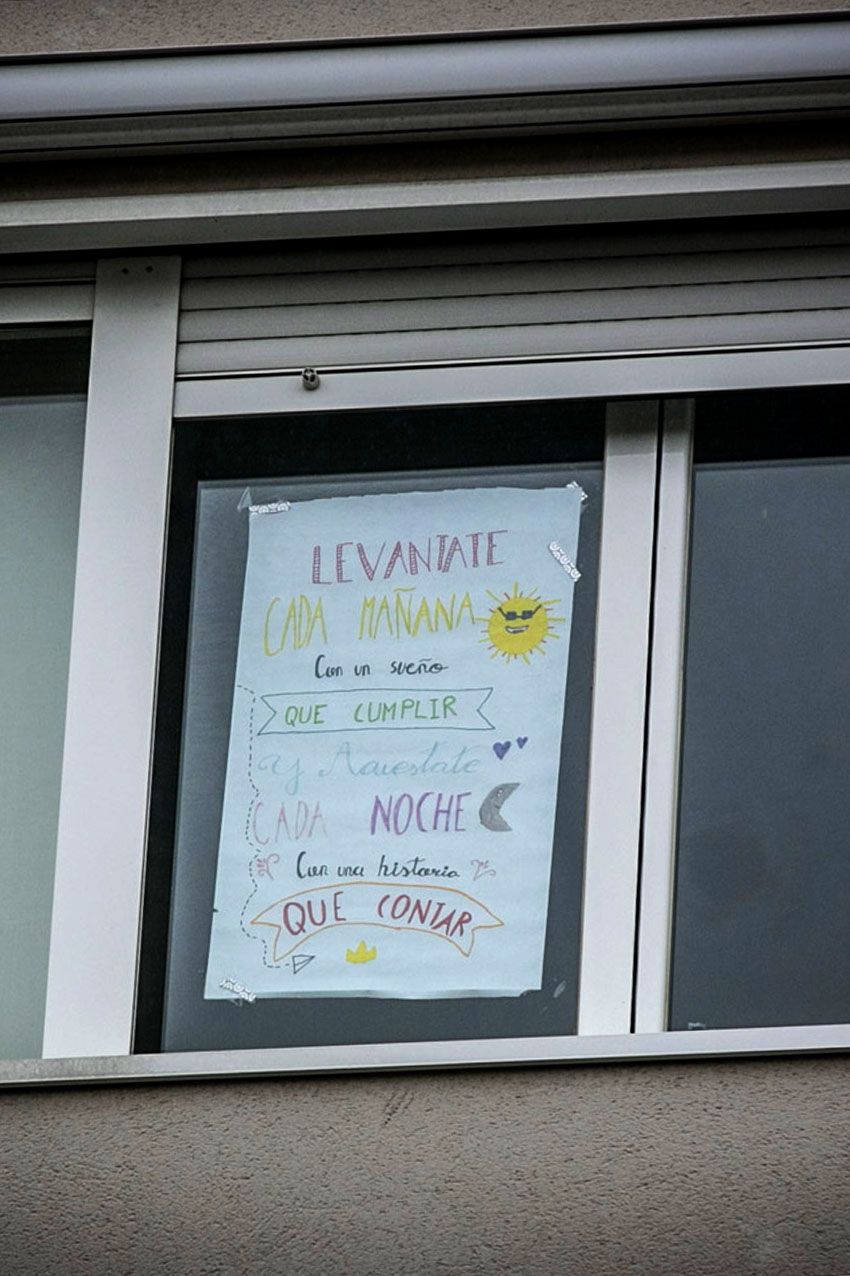 LEVANTATE
CADA MAÑANA
Con un sueño
QUE CUMPLIR
Y Acuestate
CADA NOCHE
Con una historia
QUE CONTAR